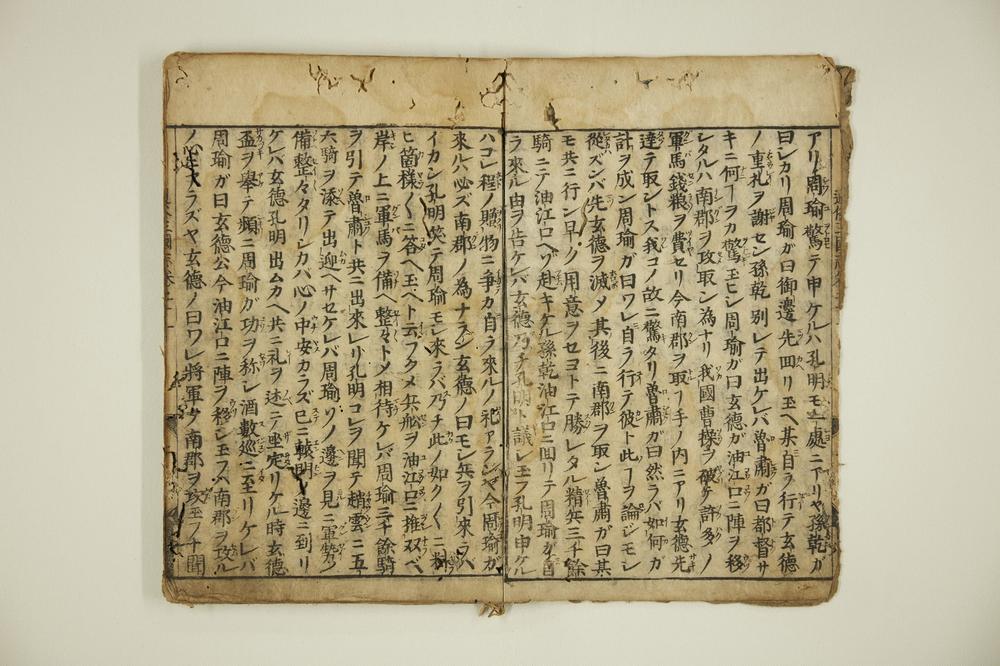 アリ周瑜驚テ申ケルハ孔明モ一處ニアリヤ孫乾ガ
曰シカリ周瑜ガ曰御邊先回リ玉ヘ某自ラ行テ玄德
ノ重礼ヲ謝セン孫乾別レテ出ケレバ魯肅ガ曰都督サ
キニ何ヿヲカ驚玉ヒシ周瑜ガ曰玄德ガ油江口ニ陣ヲ移
シタルハ南郡ヲ攻取ン為ナリ我國曹操ヲ破テ許多ノ
軍馬錢粮ヲ費セリ今南郡ヲ取ヿ手ノ内ニアリ玄德先
達テ取ントス我コノ故ニ驚タリ魯肅ガ曰然ラバ如何ガ
計ヲ成ン周瑜ガ曰ワレ自ラ行テ彼ト此ヿヲ論ジモシ
從ズンバ先玄德ヲ滅メ其後ニ南郡ヲ取ン魯肅ガ曰某
モ共ニ行ン早ク用意ヲセヨトテ勝レタル精兵三千餘
騎ニテ油江口ヘゾ赴キケル孫乾油江口ニ回リテ周瑜ガ自
ラ來ル由ヲ告ケレバ玄德乃チ孔明ト議シ玉フ孔明申ケル
ハコレ程ノ贈物ニ爭カ自ラ來ルノ礼アランヤ今周瑜ガ
來ルハ必ズ南郡ノ為ナラン玄德ノ曰モシ兵ヲ引來ラバ
イカン孔明笑テ周瑜モシ來ラバ乃チ此ノ如ク〱ニ
箇樣〱ニ答ヘ玉ヘト云フクメ兵舩ヲ油江口ニ推双ベ
岸ノ上ニ軍馬ヲ備ヘ整々トメ相待ケレバ周瑜三千餘騎
ヲ引テ魯肅ト共ニ出來レリ孔明コレヲ聞テ趙雲ニ五
六騎ヲ添テ出迎ヘサセケレバ周瑜ソノ邊ヲ見ニ軍勢ノ
備整々タリシカバ心ノ中安カラズ已ニ轅門ノ邊ニ到リ
ケレバ玄德孔明出ムカヘ共ニ礼ヲ述テ坐定リケル時玄德
盃ヲ擧テ頻ニ周瑜ガ功ヲ称シ酒數巡ニ至リケレバ
周瑜ガ曰玄德公今油江口ニ陣ヲ移シ玉フハ南郡ヲ取ル
ノ心ニアラズヤ玄德ノ曰ワレ將軍ノ南郡ヲ攻玉フト聞